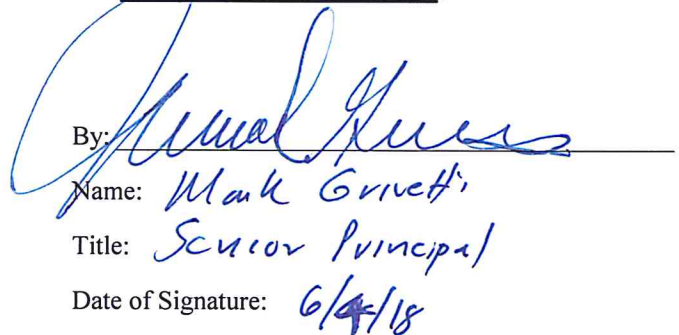 By:
Name: Mark Grivetti
Title: Senior Principal
Date of Signature: 6/4/18